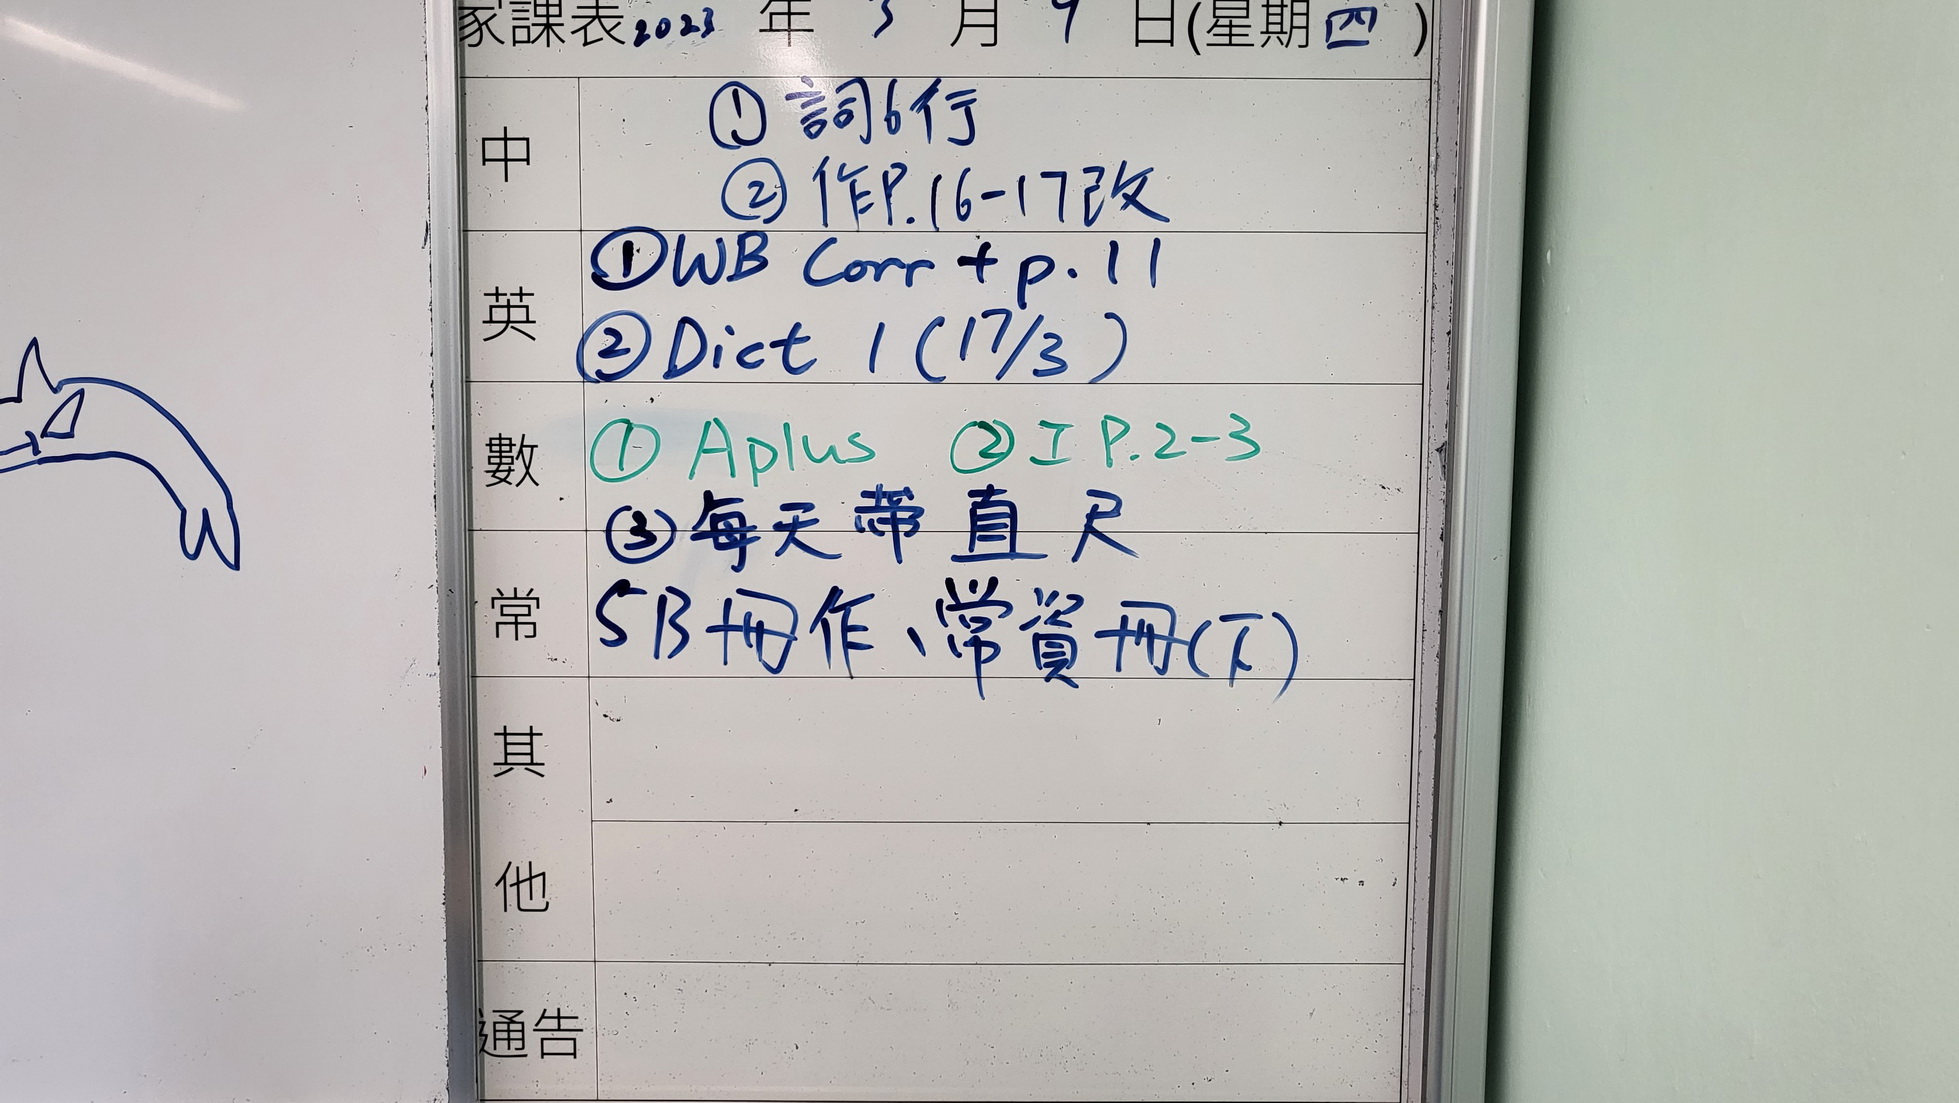 家課表2023 年 3 月 9 日(星期四)
中
① 詞6行
② 作P.16-17改
英
①WB Corr + p.11
②Dict 1 (17/3)
數
① Aplus ②I P.2-3
③每天帶直尺
常
5B冊作、常資冊(下)
其
他
通告